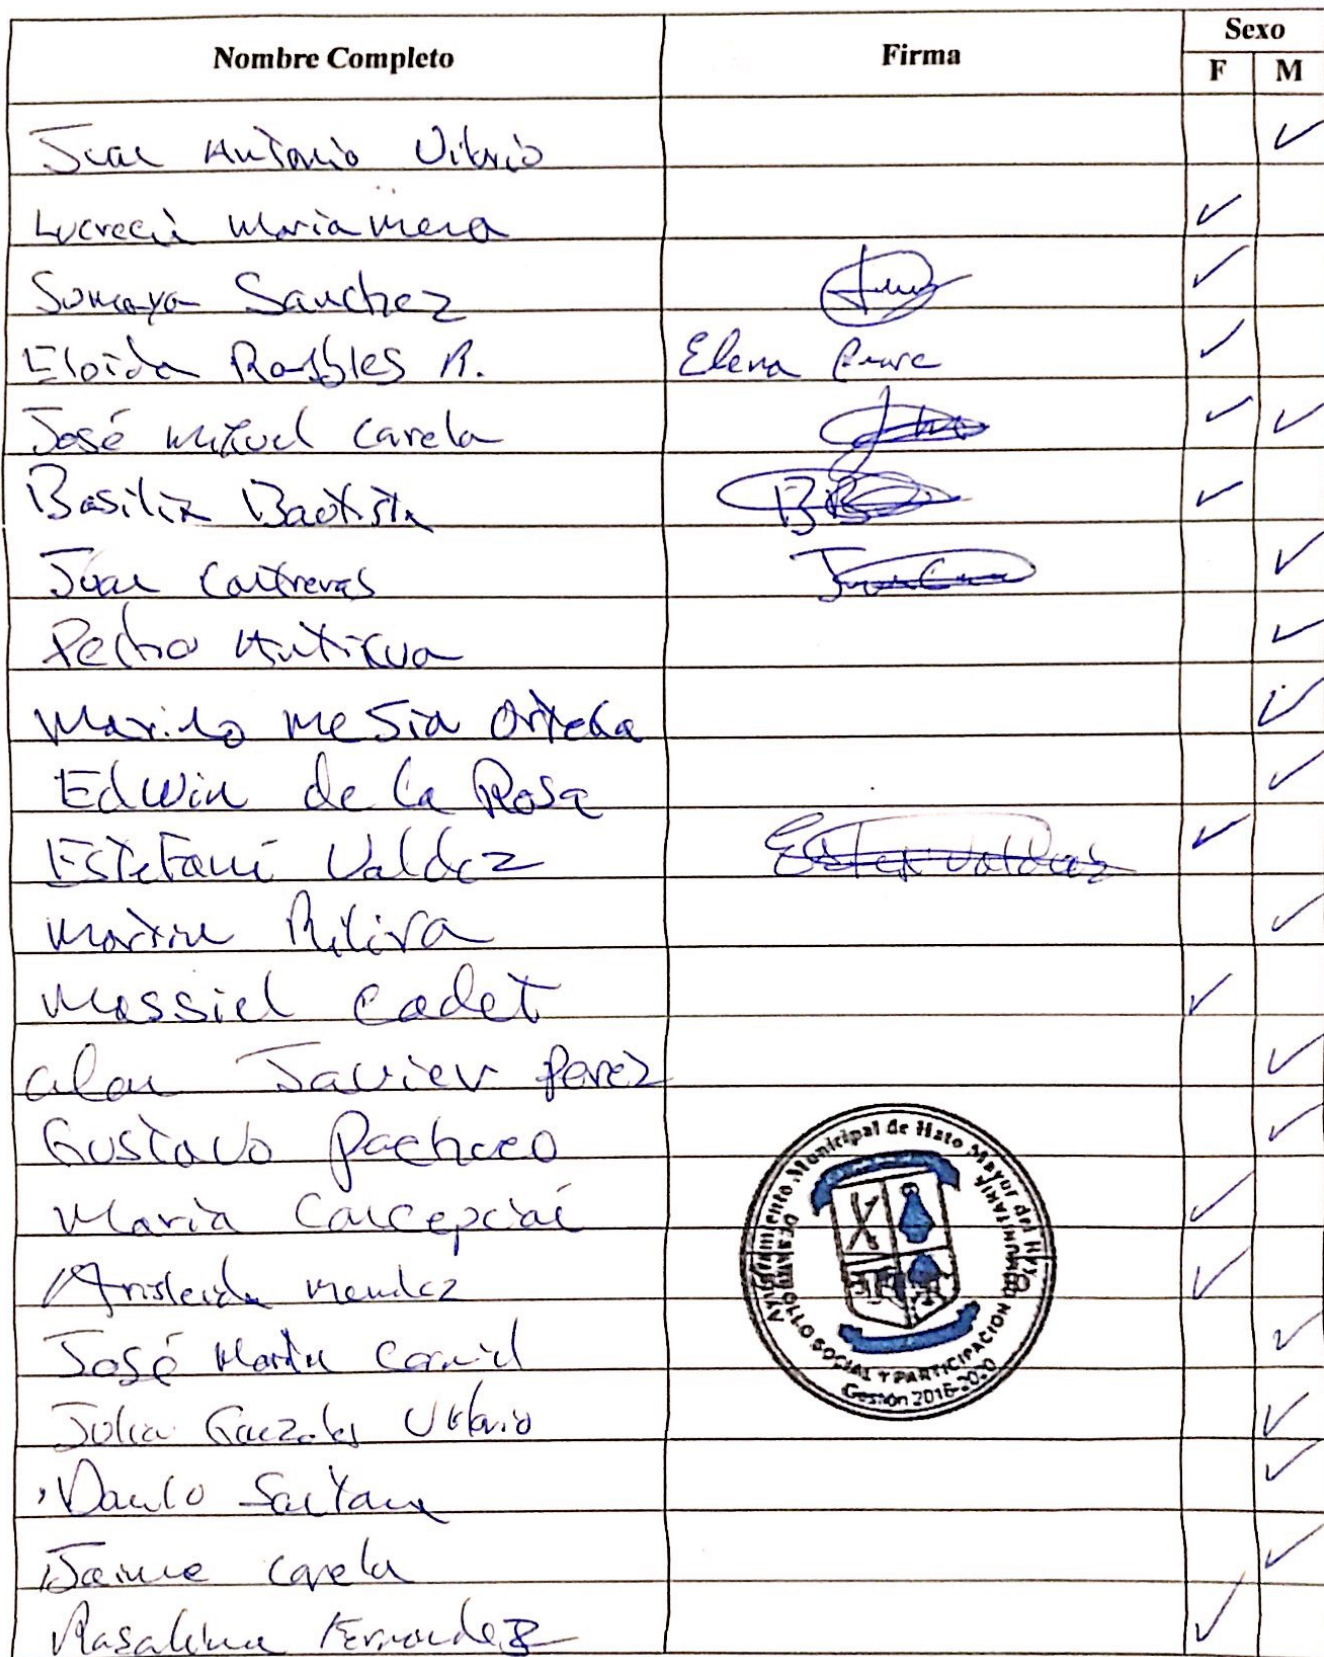 Nombre Completo Firma Sexo
F M
Juan Antonio Vilorio ✓
Lucrecia Maria Mena ✓
Sumaya Sanchez ✓
Eloida Robles R. Elena ✓
José Miguel Carela ✓ ✓
Basilia Bautista ✓
Juan Contreras ✓
Pedro Antigua ✓
Marino Mesia Ortega ✓
Edwin de la Rosa ✓
Estefani Valdez Ester Valdez ✓
Martin ✓
Massiel Cadet ✓
alan Javier perez ✓
Gustavo Pacheco ✓
Maria Concepcion ✓
Aristeida Mendez ✓
José Martin ✓
Julian Gonzales Vilorio ✓
Danilo Santana ✓
Jaime Carela ✓
Rosalina Fernandez ✓
Ayuntamiento Municipal de Hato Mayor del Rey
DESARROLLO SOCIAL Y PARTICIPACION COMUNITARIA
Gestión 2016-2020